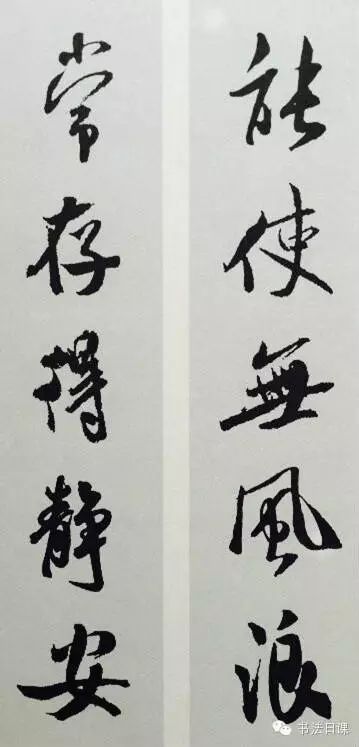 能使無風浪
常存得靜安
书法日课